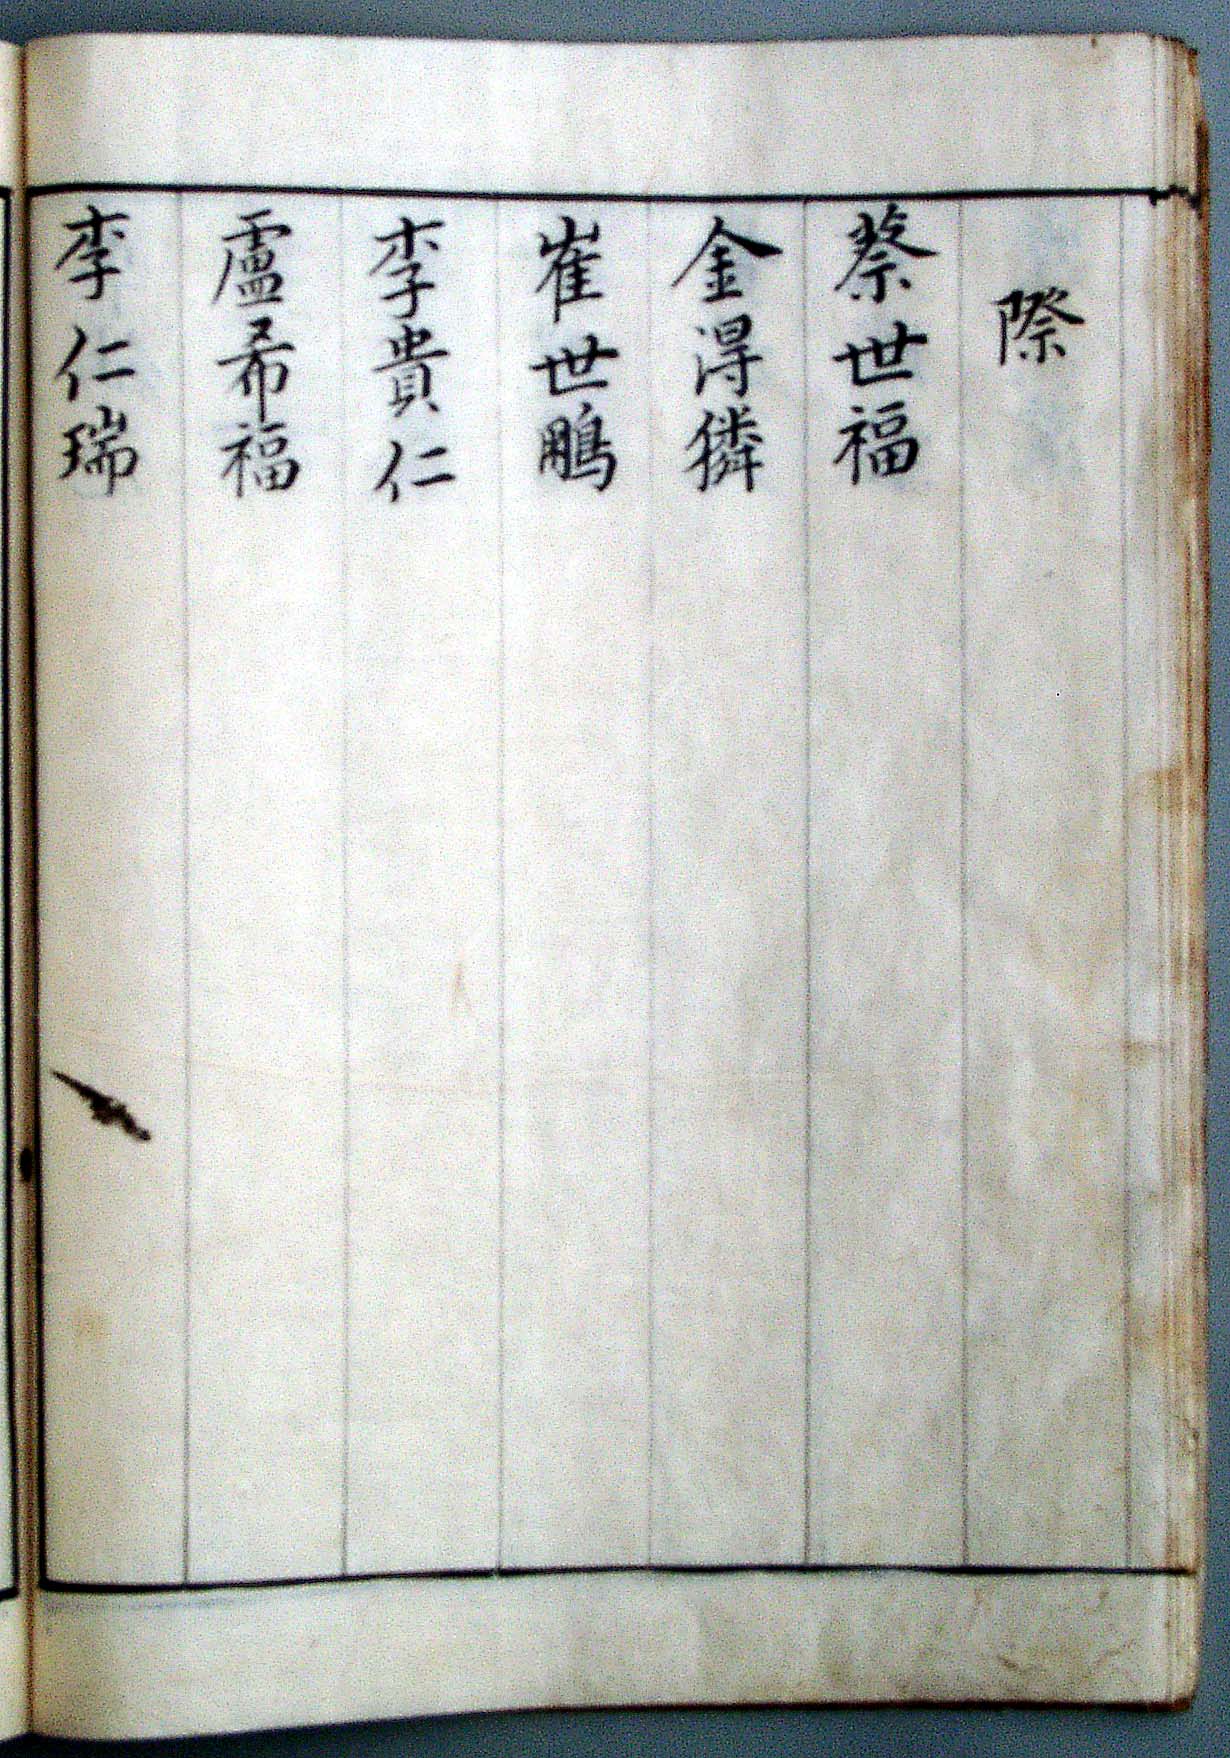 際
蔡世福
金淂獜
崔世鵬
李貴仁
盧希福
李仁瑞